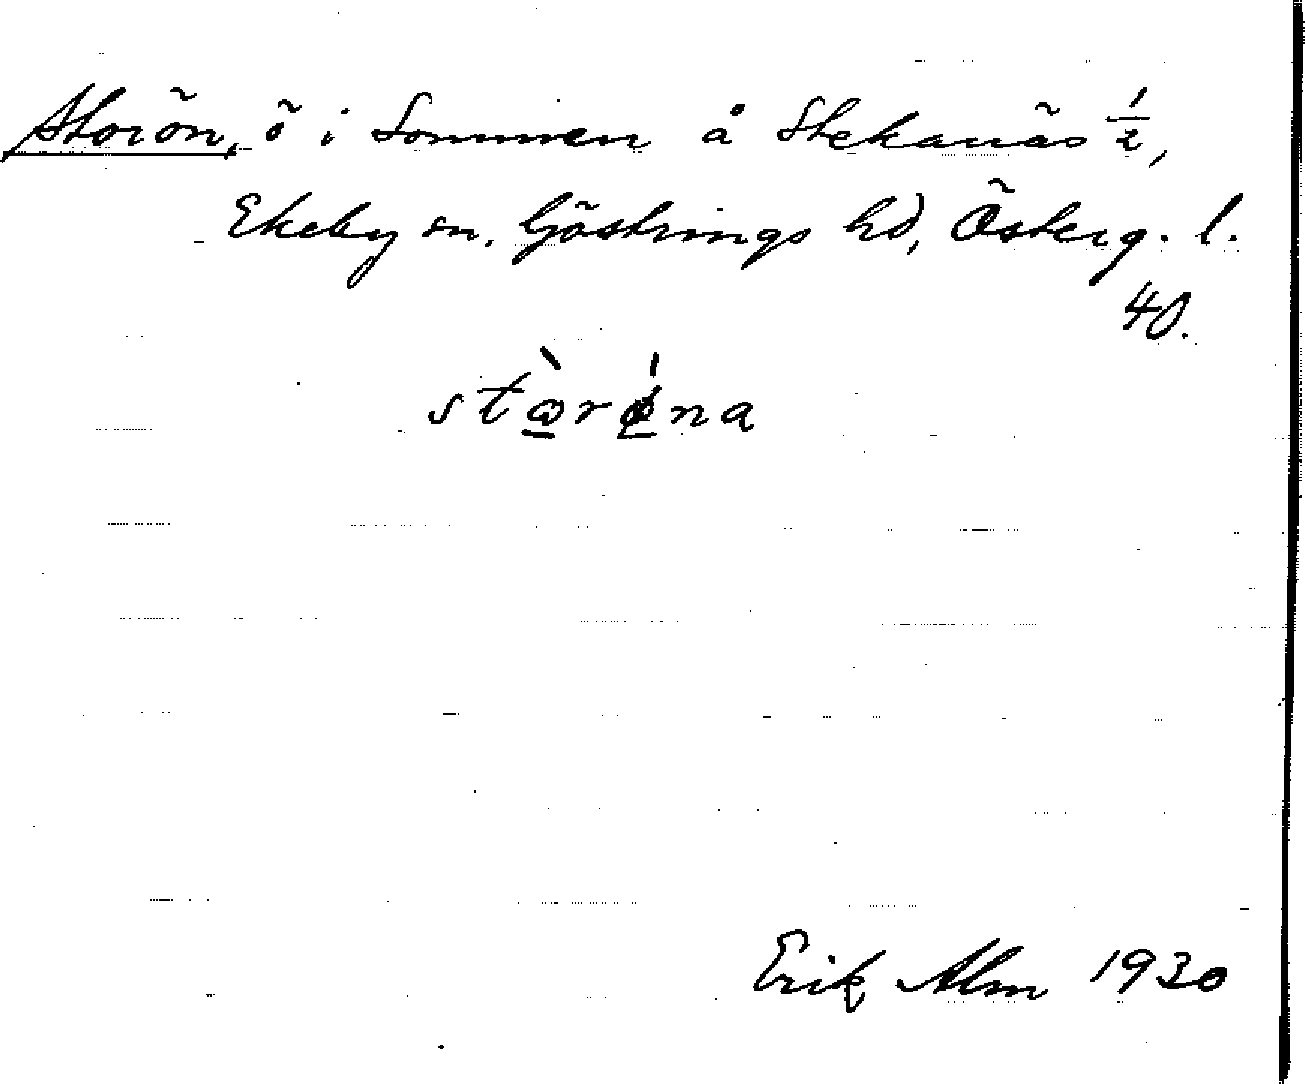 Storön, ö i Sommen å Stekanäs 1/2,
Ekeby sn, Göstrings hd, Österg. l.
40.
stὼrǿna
Erik Alm 1930